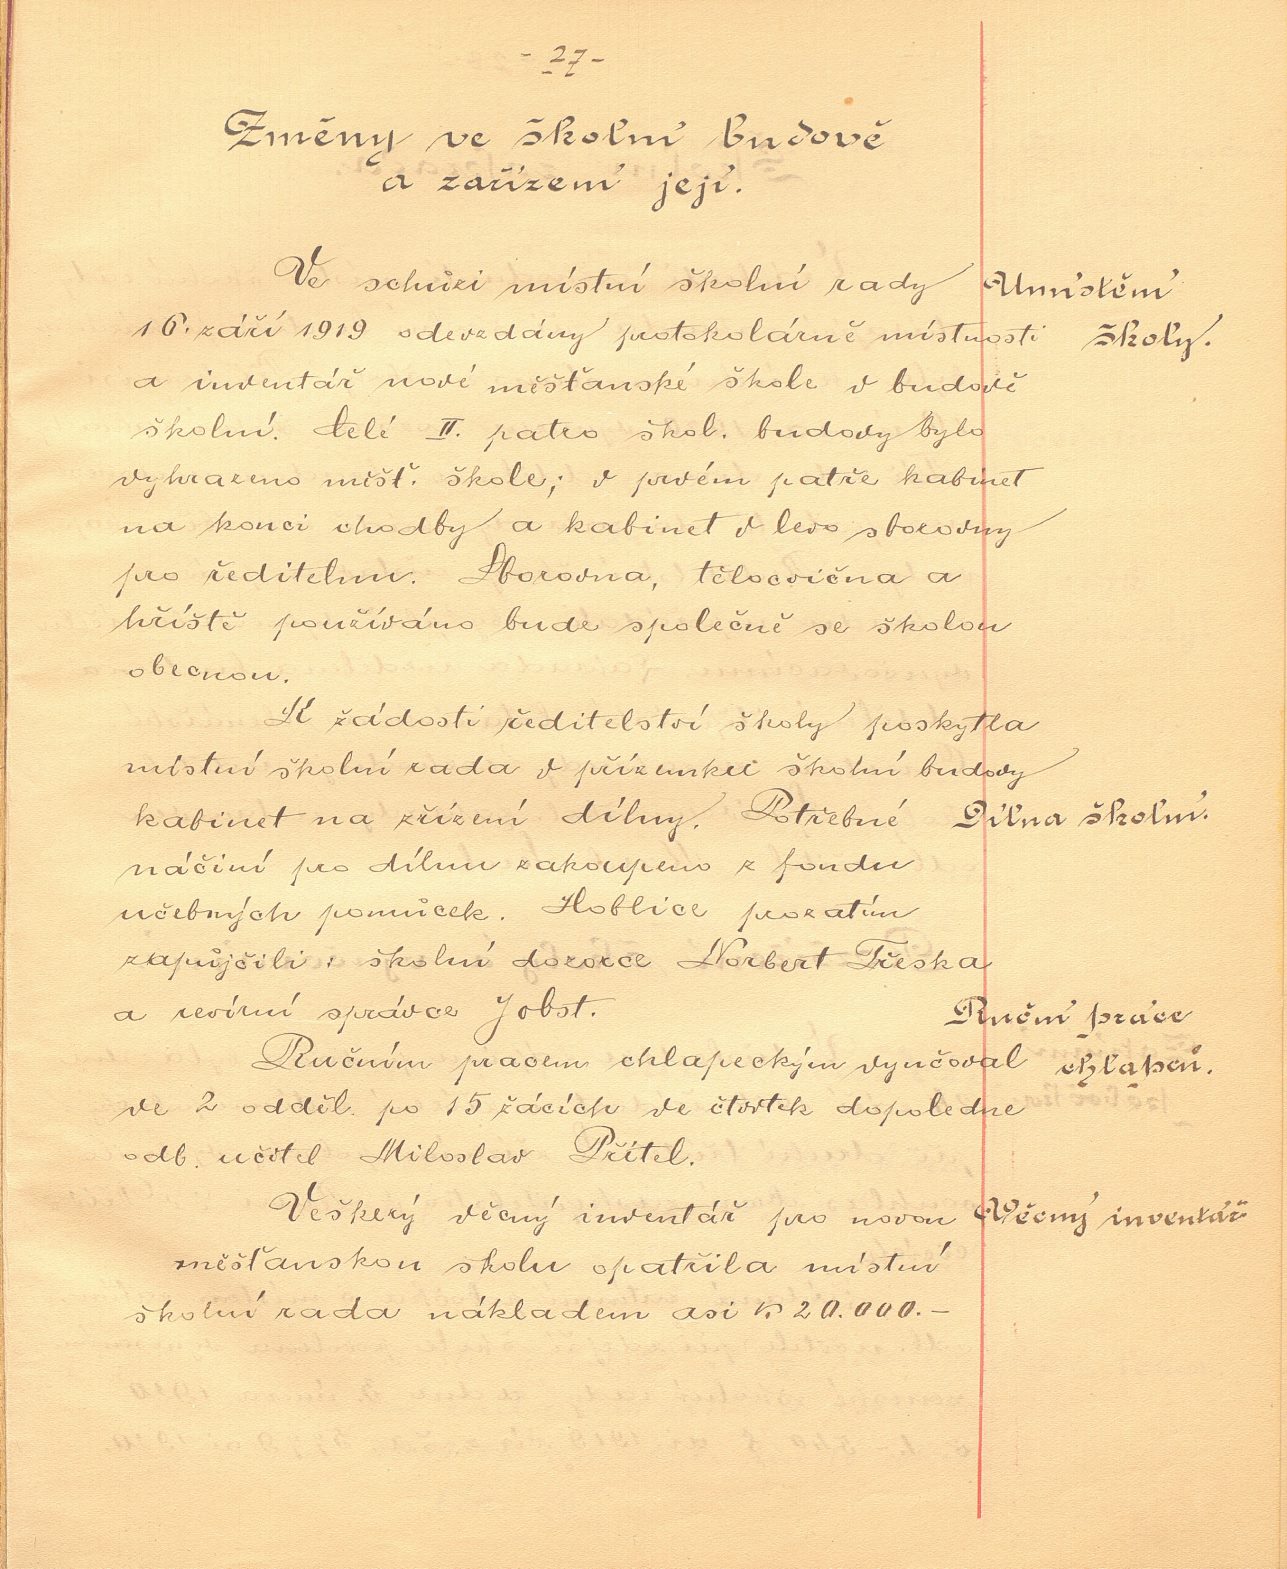 - 27 -
Změny ve školní budově
a zařízení její.
Ve schůzi místní školní rady
Umístění
16. září 1919 odevzdány protokolárně místnosti
školy.
a inventář nové měšťanské škole v budově
školní. Celé II. patro škol. budovy bylo
vyhrazeno měšť. škole; v prvém patře kabinet
na konci chodby a kabinet v levo sborovny
pro ředitelnu. Sborovna, tělocvična a
hřiště používáno bude společně se školou
obecnou.
K žádosti ředitelství školy poskytla
místní školní rada v přízemku školní budovy
kabinet na zřízení dílny. Potřebné
Dílna školní.
náčiní pro dílnu zakoupeno z fondu
učebných pomůcek. Hoblice prozatím
zapůjčili: školní dozorce Norbert Třeska
a revírní správce Jobst.
Ruční práce
Ručním pracem chlapeckým vyučoval
chlapců.
ve 2 odděl. po 15 žácích ve čtvrtek dopoledne
odb. učitel Miloslav Přítel.
Veškerý věcný inventář pro novou
Věcný inventář
měšťanskou skolu opatřila místní
školní rada nákladem asi K 20.000.-